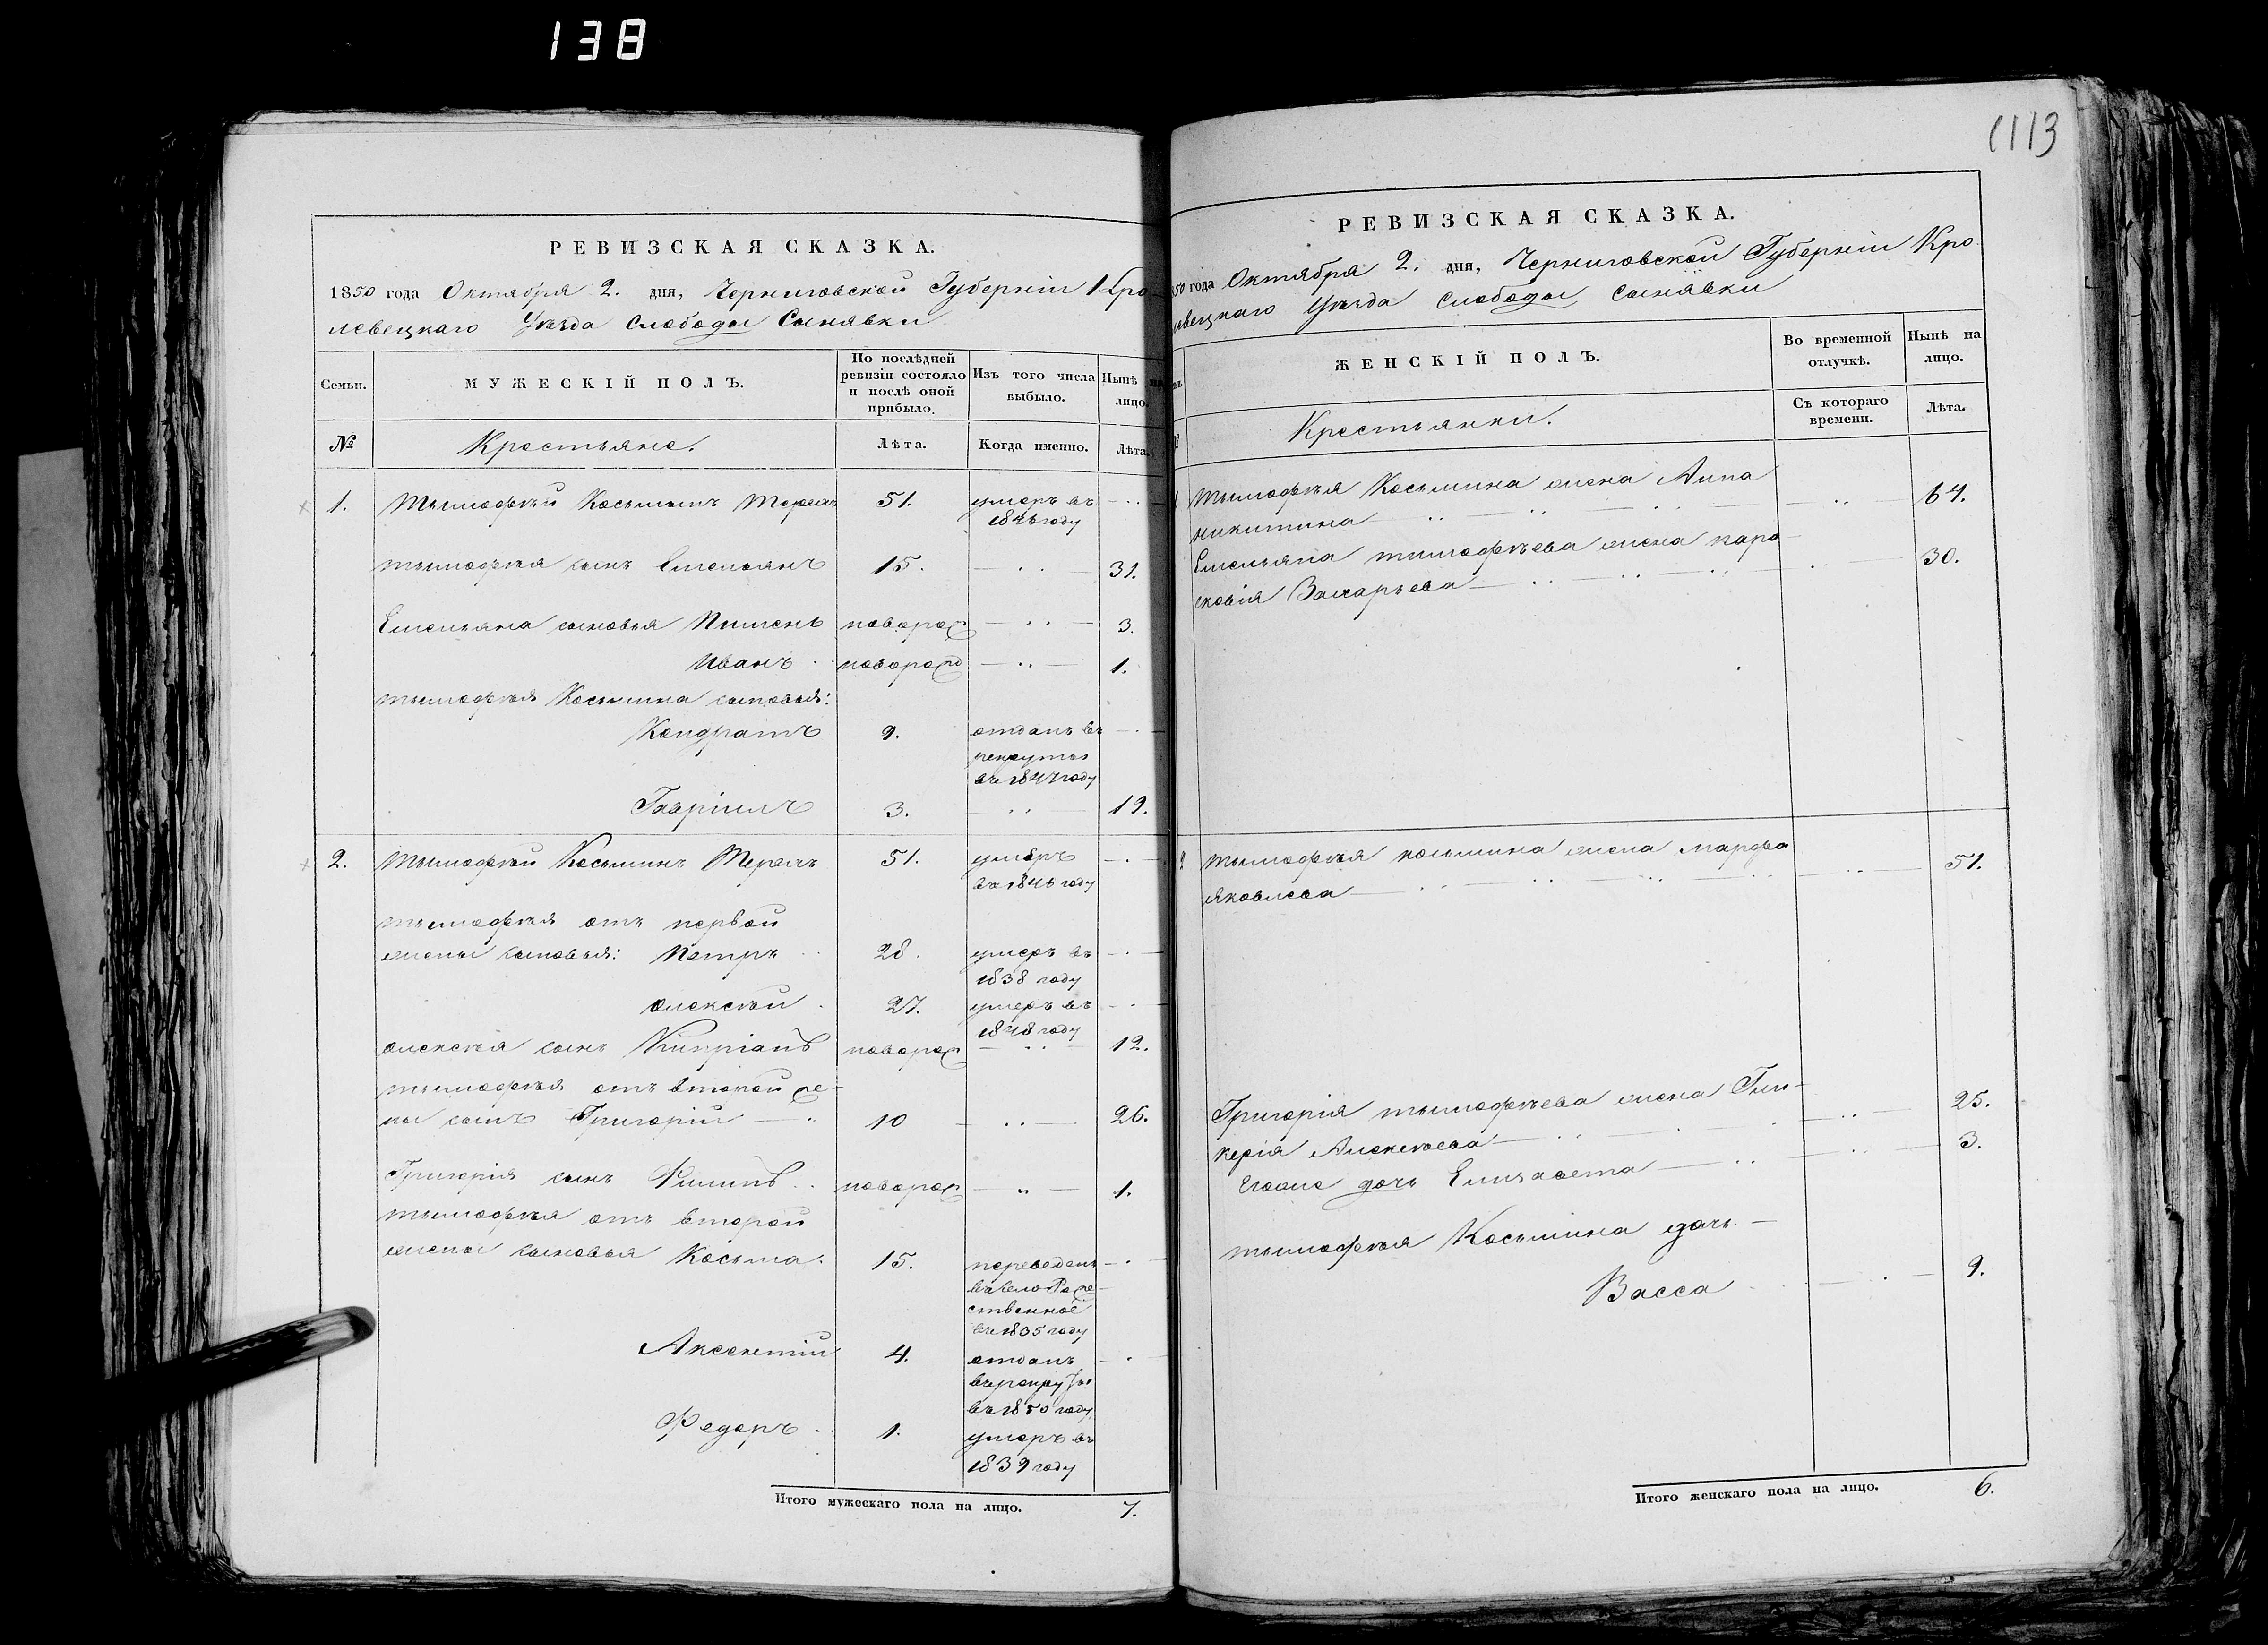 138
РЕВИЗСКАЯ СКАЗКА.
1850 года Октября 2. дня, Черниговской Губерніи Кро
левецкаго Уѣзда Слободы Сынявки
Семьи.
МУЖЕСКІЙ ПОЛЪ.
По послѣдней
ревизіи состояло
и послѣ оной
прибыло.
Изъ того числа
выбыло.
Нынѣ на
лицо.
№
Крестьяне.
Лѣта.
Когда именно.
Лѣта.
1. Тымофѣй Косьминъ 51. умеръ въ
1846 году
тымофѣя сынъ Емельянъ 15. 31.
Емельяна сыновья Пименъ новорож 3.
Иванъ новорожд 1.
тымофѣя Косьмина сыновья:
Кондратъ 9. отданъ въ
рекруты
въ 1847 году
Гавріилъ 3. 19.
2. Тымофѣй Косьминъ 51. умеръ
въ 1846 году
тымофѣя отъ первой
жены сыновья: Петръ 28. умеръ въ
1838 году
Алексѣй 27. умеръ въ
1848 году
Алексѣя сынъ Кипріанъ новорож 12.
тымофѣя отъ второй же-
ны сынъ Григорій 10 26.
Григорія сынъ Филипъ новорож 1.
тымофѣя отъ второй
жены сыновья Косьма. 15. переведенъ
въ село Рожe-
ственное
въ 1835 году
Аксентій 4. отданъ
въ рекруты
въ 1850 году
Федоръ 1. умеръ въ
1839 году
Итого мужескаго пола на лицо. 7.
1113
РЕВИЗСКАЯ СКАЗКА.
50 года Октября 2. дня, Черниговской Губерніи Кро
левецкаго Уѣзда Слободы Сынявки
ЖЕНСКІЙ ПОЛЪ.
Во временной
отлучкѣ.
Нынѣ на
лицо.
Крестьянки.
Съ котораго
времени.
Лѣта.
тымофѣя Косьмина жена Анна
никитина 64.
Емельяна тимофѣева жена пара
сковія Захарьева 30.
тымофѣя косьмина жена марфа
яковлева 51.
Григорія тымофѣева жена Гли-
керія Алексѣева 25.
дочь Елизавета 3.
тымофѣя Косьмина дочь
Васса 9.
Итого женскаго пола на лицо. 6.